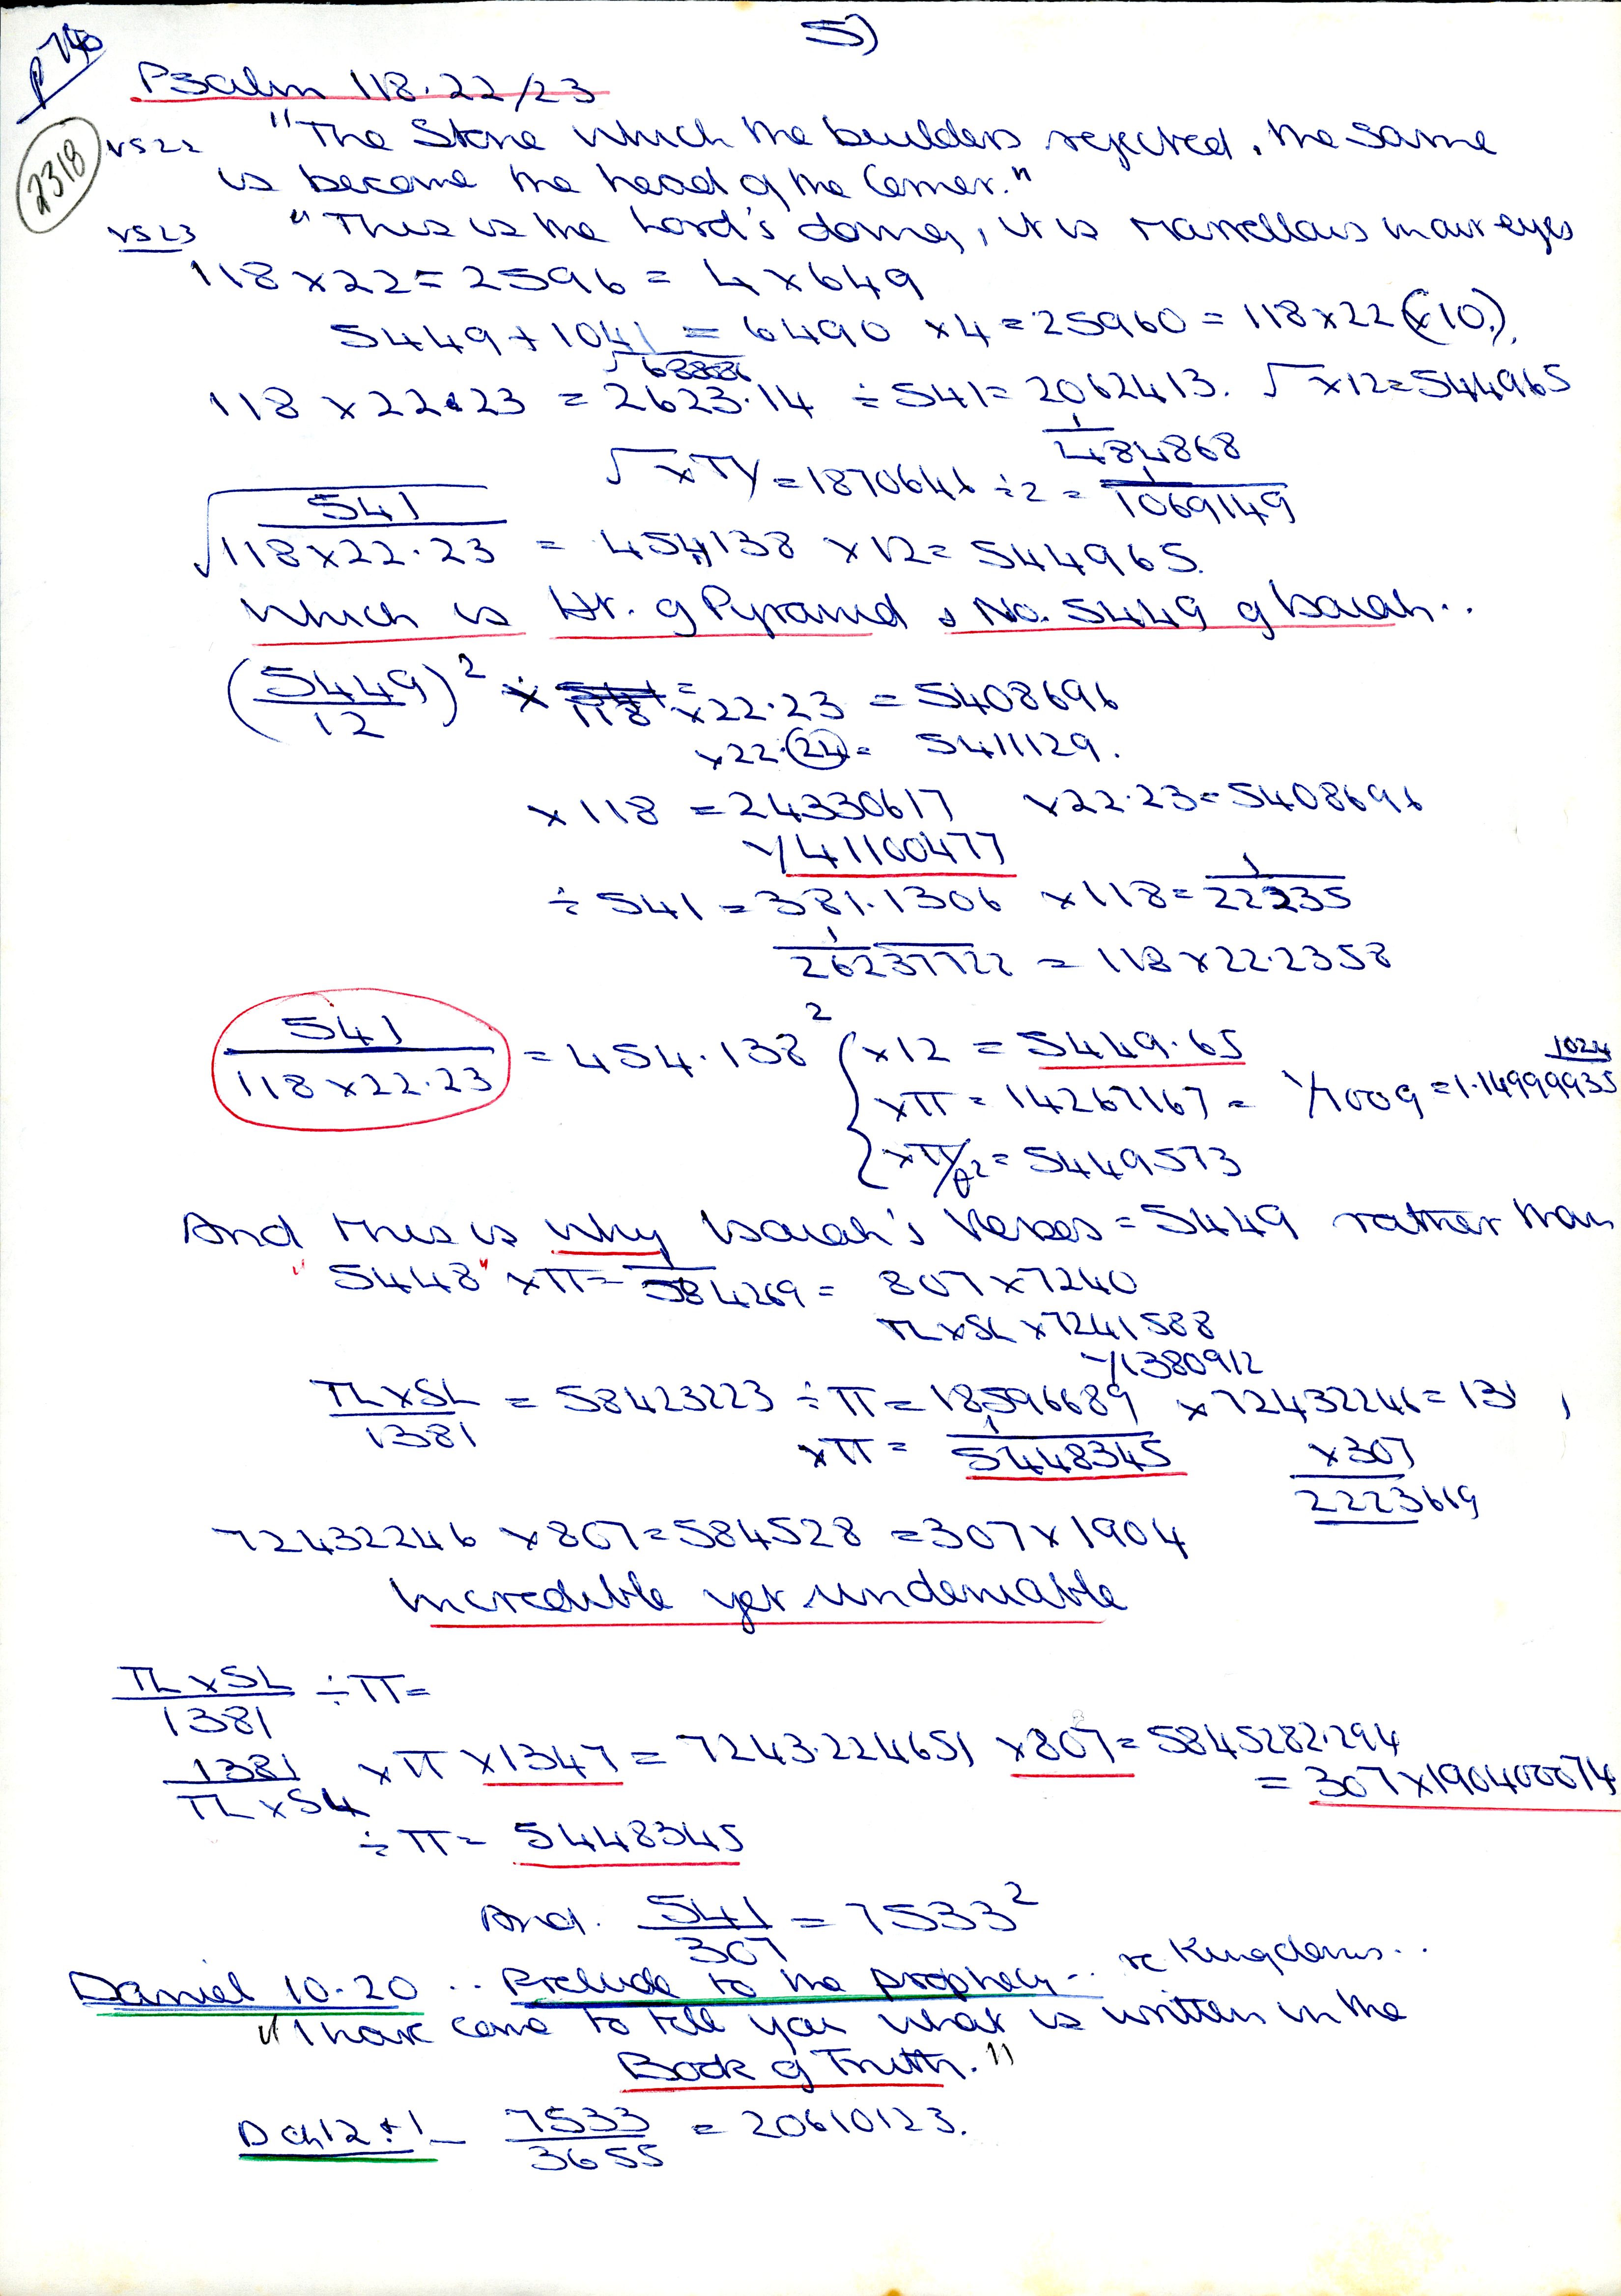 5)
P 740
Psalm 118.22/23
2318
vs 22 "The Stone which the builders rejected, the same
is become the head of the Corner."
vs 23 "This is the Lord's doing, it is marvellous in our eyes
118 × 22 = 2596 = 4 × 649
5449 + 1041 = 6490 × 4 = 25960 = 118 × 22 (× 10.)
118 × 22.23 = 2623.14 ÷ 541 = 2062413. √ × 12 = 544965
1/484868
√ × π/ = 1870646 ÷ 2 = 1/1069149
√541/118 × 22.23 = 454,138 × 12 = 544965.
Which is Ht. of Pyramid & No. 5449 of Isaiah..
(5449/12)² ÷ 118 × 22.23 = 5408696
× 22.24 = 5411129.
× 118 = 24330617 × 22.23 = 5408696
1/41100477
÷ 541 = 381.1306 × 118 = 1/22235
1/26237722 = 118 × 22.2358
541/118 × 22.23 = 454.138² { × 12 = 5449.65
× π = 14267167 = 1/7009 = 1.14999935
1024
× π/θ2 = 5449573
And this is why Isaiah's Verses = 5449 rather than
"5448" × π = 1/584269 = 807 × 7240
TL × SL × 7241588
1/1380912
TL × SL/1381 = 58423223 ÷ π = 18,596689 × 72432246 = 1347,
× π = 1/5448345 × 307
2223619
72432246 × 807 = 584528 = 307 × 1904
Incredible yet undeniable
TL × SL/1381 ÷ π =
1381/TL × SL × π × 1347 = 7243.224651 × 807 = 5845282.294
= 307 × 190400074
÷ π = 5448345
And. 541/307 = 7533²
Daniel 10.20 .. Prelude to the prophecy .. re Kingdoms..
"I have come to tell you what is written in the
Book of Truth."
D ch 12 ± 1 7533/3655 = 20610123.